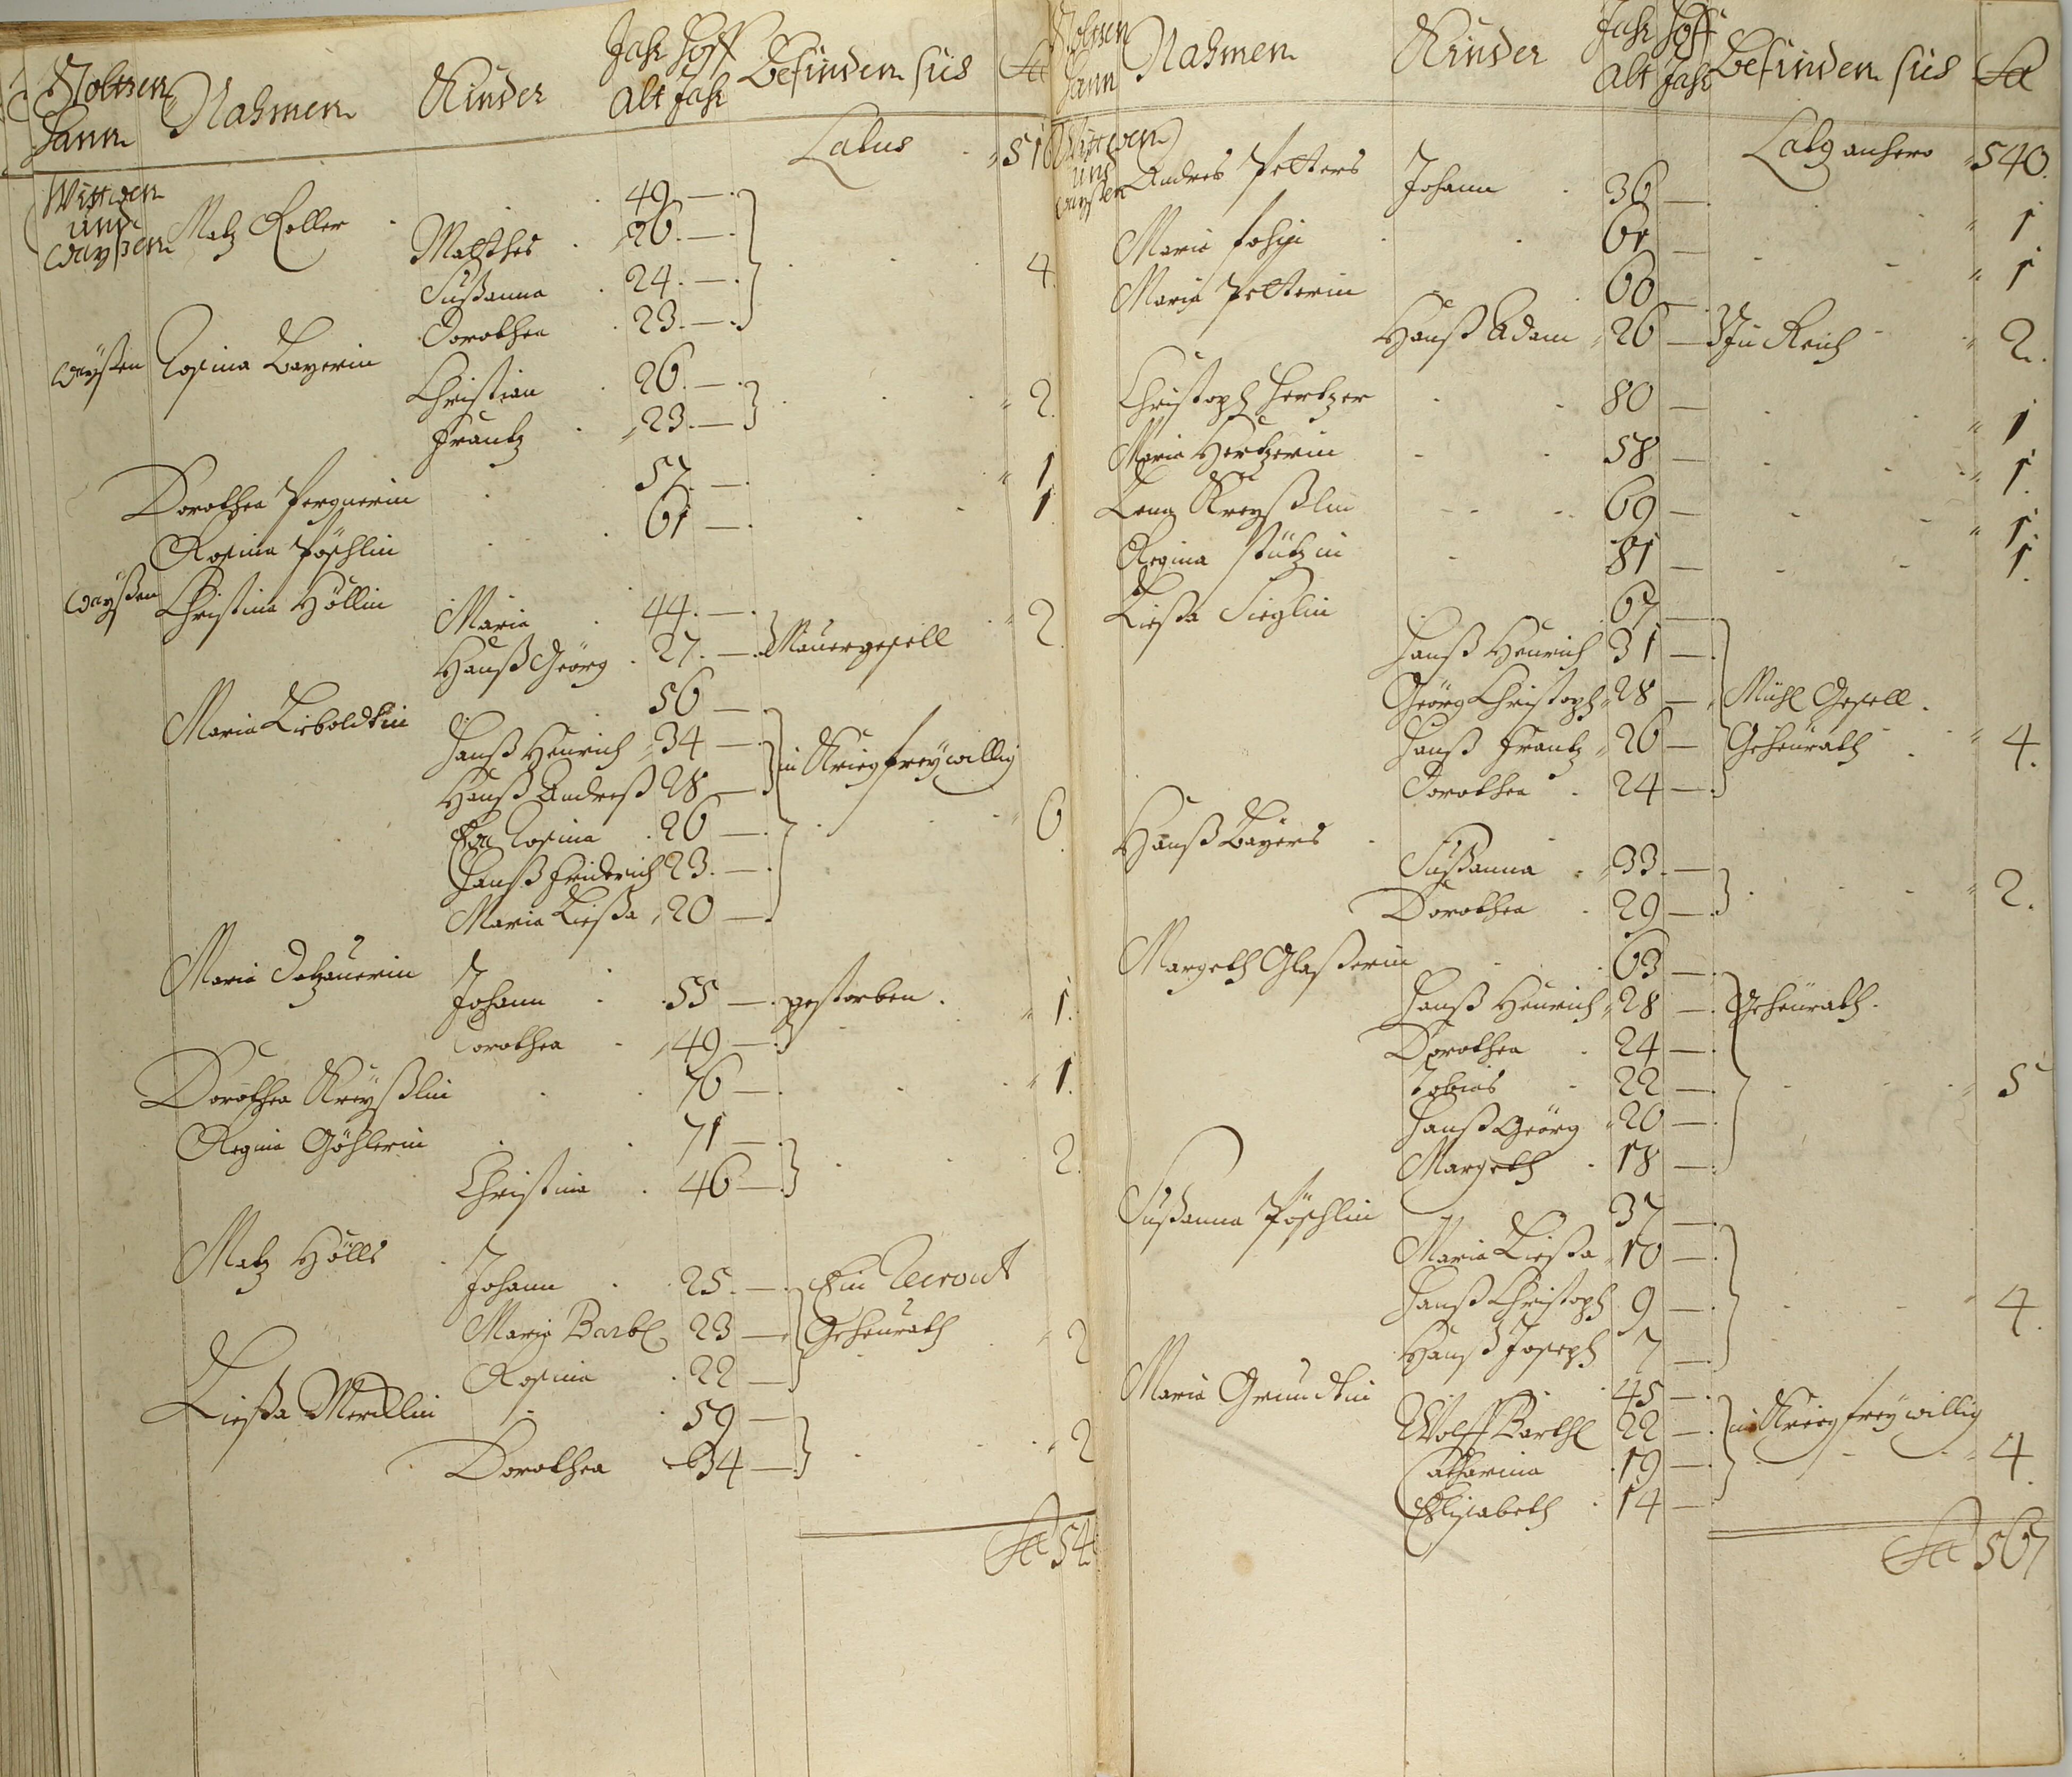 Nahmen Kinder Jahr Hoff Befinden sich Sa
Hann Alt Jahr
Latus 516
Wittwen
und
Waysen Matz Roller 49 —
Matthes 26 —
Sußanna 24 — 4
Dorothea 23 —
Waysen Rosina Bayerin
Christian 26 —
Frantz 23 — 2
Dorothea Pergnerin 57 — 1
Rosina Pöschlin 61 — 1
Waysen Christina Höllin
Maria 44 —
Hanß Geörg 27 — Maurergesell 2
Maria Lieboldtin 56 —
Hanß Henrich 34 —
Hanß Andreß 28 — in Krieg freywillig
Eva Rosina 26 — 6
Hanß Friderich 23 —
Maria Ließa 20 —
Maria
Johann 55 — gestorben 1
Dorothea 49 —
Dorothea Kreyßlin 76 — 1
Regina Göhlerin 71 —
Christina 46 — 2
Matz Hölls
Johann 25 — Ein
Maria Barbl 23 — Geheurath 2
Rosina 22 —
Ließa Mercklin 59 —
Dorothea 34 — 2
Sa 54
Nahmen Kinder Jahr Hoff Befinden sich Sa
Hann Alt Jahr
Wittwen
und
Waysen Latq anhero 540
Andres Petters Johann 36 — 1
Maria 61 — 1
Maria Petterin 60 —
Hanß Adam 26 — Reich 2
Christoph Hertzer 80 — 1
Maria Hertzerin 58 — 1
Lena Kreyßlin 69 — 1
Regina Stützin 81 — 1
Ließa Sieglin 67 —
Hanß Henrich 31 —
Geörg Christoph 28 — Mühl Gesell
Hanß Frantz 26 — Geheurath 4
Dorothea 24 —
Hanß Bayers
Sußanna 33 —
Dorothea 29 — 2
Margeth Glaßerin 63 —
Hanß Henrich 28 — Geheurath
Dorothea 24 —
Tobias 22 — 5
Hanß Geörg 20 —
Margeth 18 —
Sußanna Pöschlin 37 —
Maria Ließa 10 —
Hanß Christoph 9 — 4
Hanß Joseph 7 —
Maria Grundtin 45 —
Wolff Barthl 22 — in Krieg freywillig
Catharina 19 — 4
Elisabeth 14 —
Sa 567